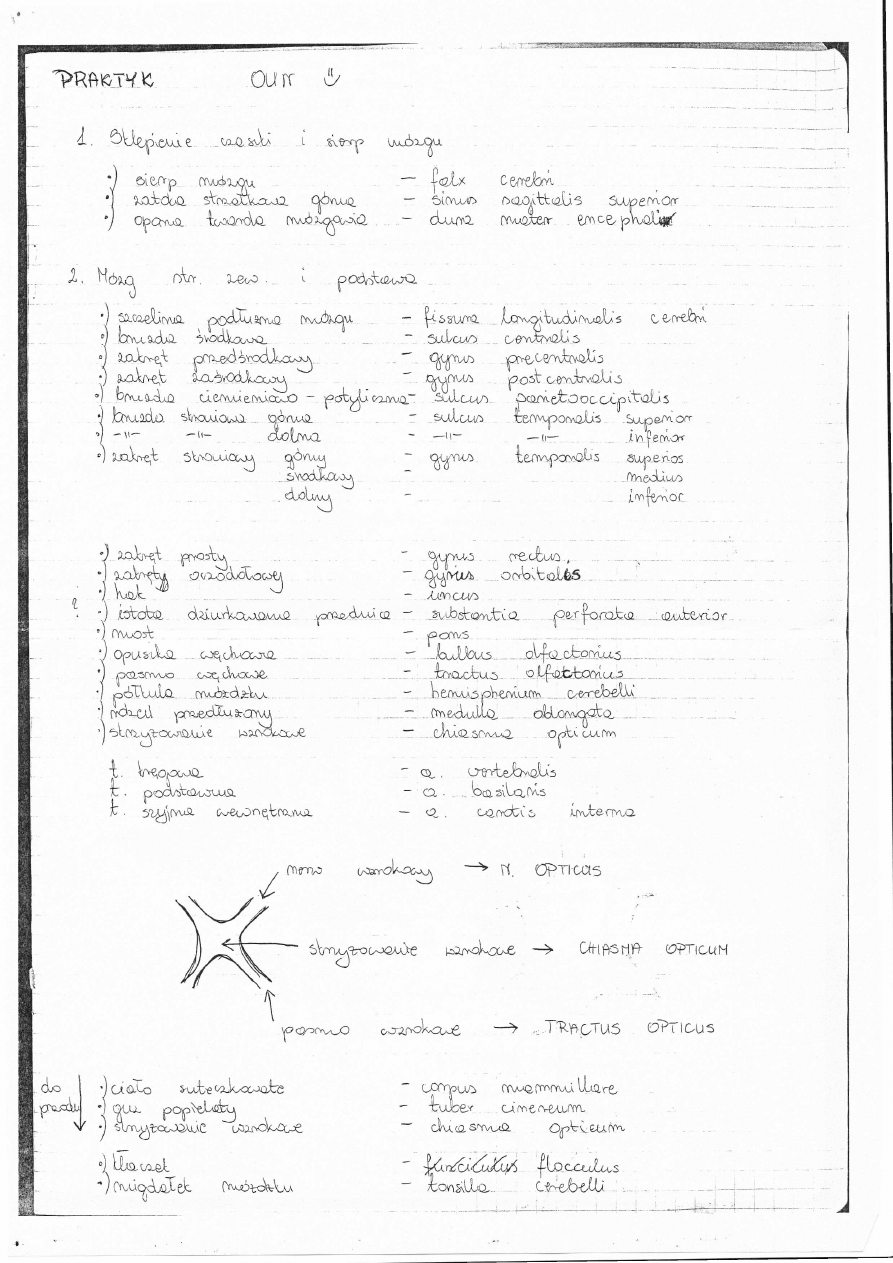 PRAKTYK OUN
1. Sklepienie czaszki i sierp mózgu
•) sierp mózgu – falx cerebri
•) zatoka strzałkowa górna – sinus sagittalis superior
•) opona twarda mózgowia – dura mater encephali
2. Mózg str. zew. i podstawa
•) szczelina podłużna mózgu – fissura longitudinalis cerebri
•) bruzda środkowa – sulcus centralis
•) zakręt przedśrodkowy – gyrus precentralis
•) zakręt zaśrodkowy – gyrus postcentralis
•) bruzda ciemieniowo-potyliczna – sulcus parietooccipitalis
•) bruzda skroniowa górna – sulcus temporalis superior
•) –"– –"– dolna – –"– –"– inferior
•) zakręt skroniowy górny – gyrus temporalis superios
środkowy – medius
dolny – inferior
•) zakręt prosty – gyrus rectus,
•) zakręty oczodołowey – gyrus orbitales
•) hak – uncus
? •) istota dziurkowana przednia – substantia perforata anterior
•) most – pons
•) opuszka węchowa – bulbus olfactorius
•) pasmo węchowe – tractus olfactorius
•) półkula móżdżku – hemispherium cerebelli
•) rdzeń przedłużony – medulla oblongata
•) skrzyżowanie wzrokowe – chiasma opticum
t. kręgowa – a. vertebralis
t. podstawna – a. basilaris
t. szyjna wewnętrzna – a. carotis interna
nerw wzrokowy → N. OPTICUS
skrzyżowanie wzrokowe → CHIASMA OPTICUM
pasmo wzrokowe → TRACTUS OPTICUS
do przodu
•) ciało suteczkowate – corpus mammillare
•) guz popielaty – tuber cinereum
•) skrzyżowanie wzrokowe – chiasma opticum
•) kłaczek – flocculus
•) migdałek móżdżku – tonsilla cerebelli